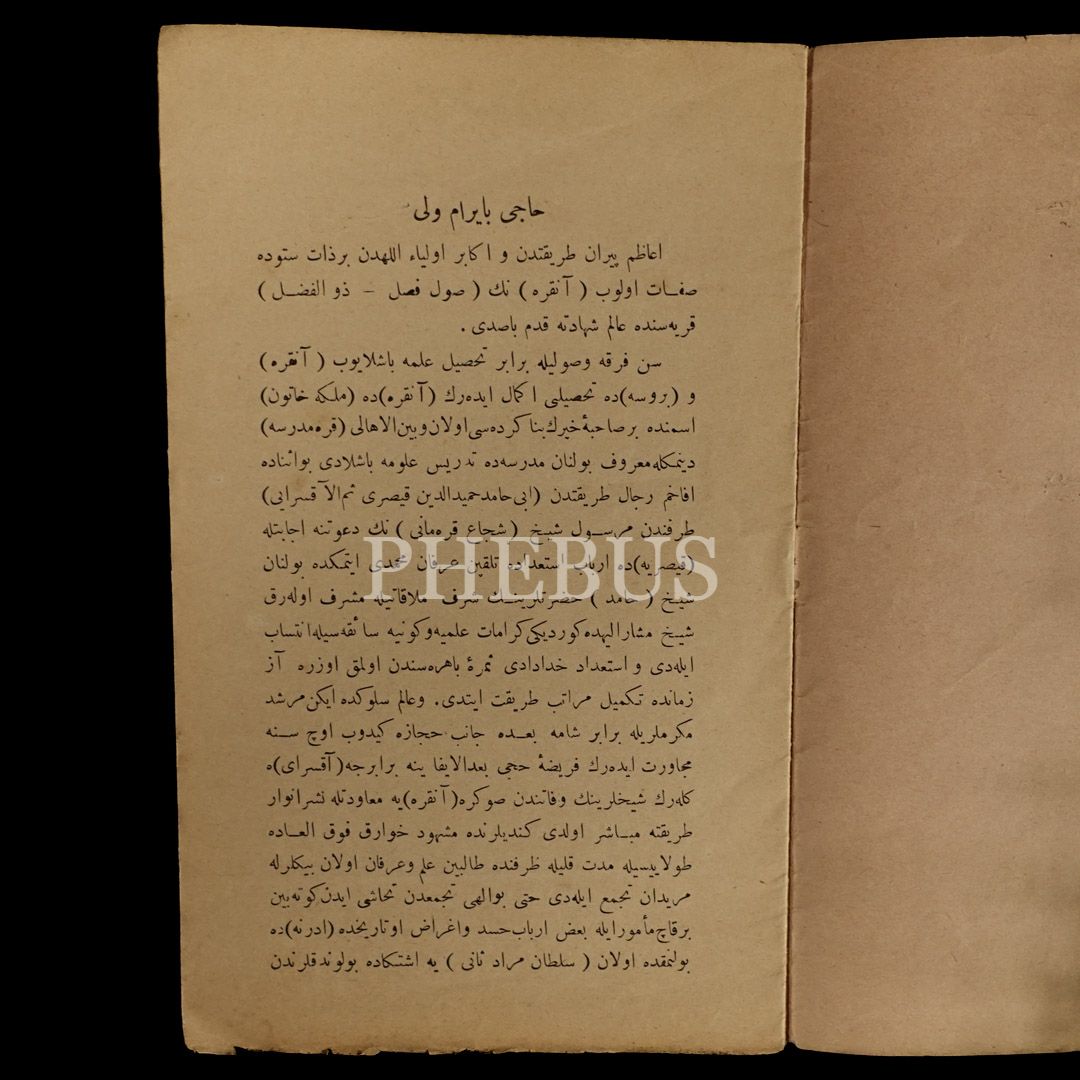 حاجی بایرام ولی
اعاظم پیران طریقتدن و اکابر اولیاء اللهدن برذات ستوده
صفات اولوب ( آنقره ) نك ( صول فصل – ذو الفضل )
قریه‌سنده عالم شهادته قدم باصدی .
سن فرقه وصولیله برابر تحصیل علمه باشلایوب ( آنقره )
و (بروسه)ده تحصیلی اکمال ایده‌رك (آنقره)ده (ملکه خاتون)
اسمنده برصاحبهٔ خیرك بنا کرده‌سی اولان و بین الاهالی (قره مدرسه)
دینمکله معروف بولنان مدرسه‌ده تدریس علومه باشلادی بو اثناده
افاخم رجال طریقتدن (ابی حامد حمیدالدین قیصری ثم الآقسرایی)
طرفندن مرسول شیخ (شجاع قره‌مانی) نك دعوتنه اجابتله
(قیصریه)ده ارباب استعداده تلقین عرفان محمدی ایتمکده بولنان
شیخ ( حامد ) حضرتلرینك شرف ملاقاتیله مشرف اوله‌رق
شیخ مشار الیهده کوردیکی کرامات علمیه و کونیه سائقه‌سیله انتساب
ایله‌دی و استعداد خدادادی ثمرهٔ باهره‌سندن اولمق اوزره آز
زمانده تکمیل مراتب طریقت ایتدی. وعالم سلوکده ایکن مرشد
مکرملریله برابر شامه بعده جانب حجازه کیدوب اوچ سنه
مجاورت ایده‌رك فریضهٔ حجی بعد الایفا ینه برابرجه (آقسرای)ه
کله‌رك شیخلرینك وفاتندن صوکره (آنقره)یه معاودتله نشر انوار
طریقته مباشر اولدی کندیلرنده مشهود خوارق فوق العاده
طولاییسیله مدت قلیله ظرفنده طالبین علم وعرفان اولان بیکلرله
مریدان تجمع ایله‌دی حتی بوالهی تجمعدن تحاشی ایدن کوته‌بین
برقاچ مأمور ایله بعض ارباب حسد واغراض اوتاریخده (ادرنه)ده
بولنمقده اولان ( سلطان مراد ثانی ) یه اشتکاده بولوندقلرندن
PHEBUS